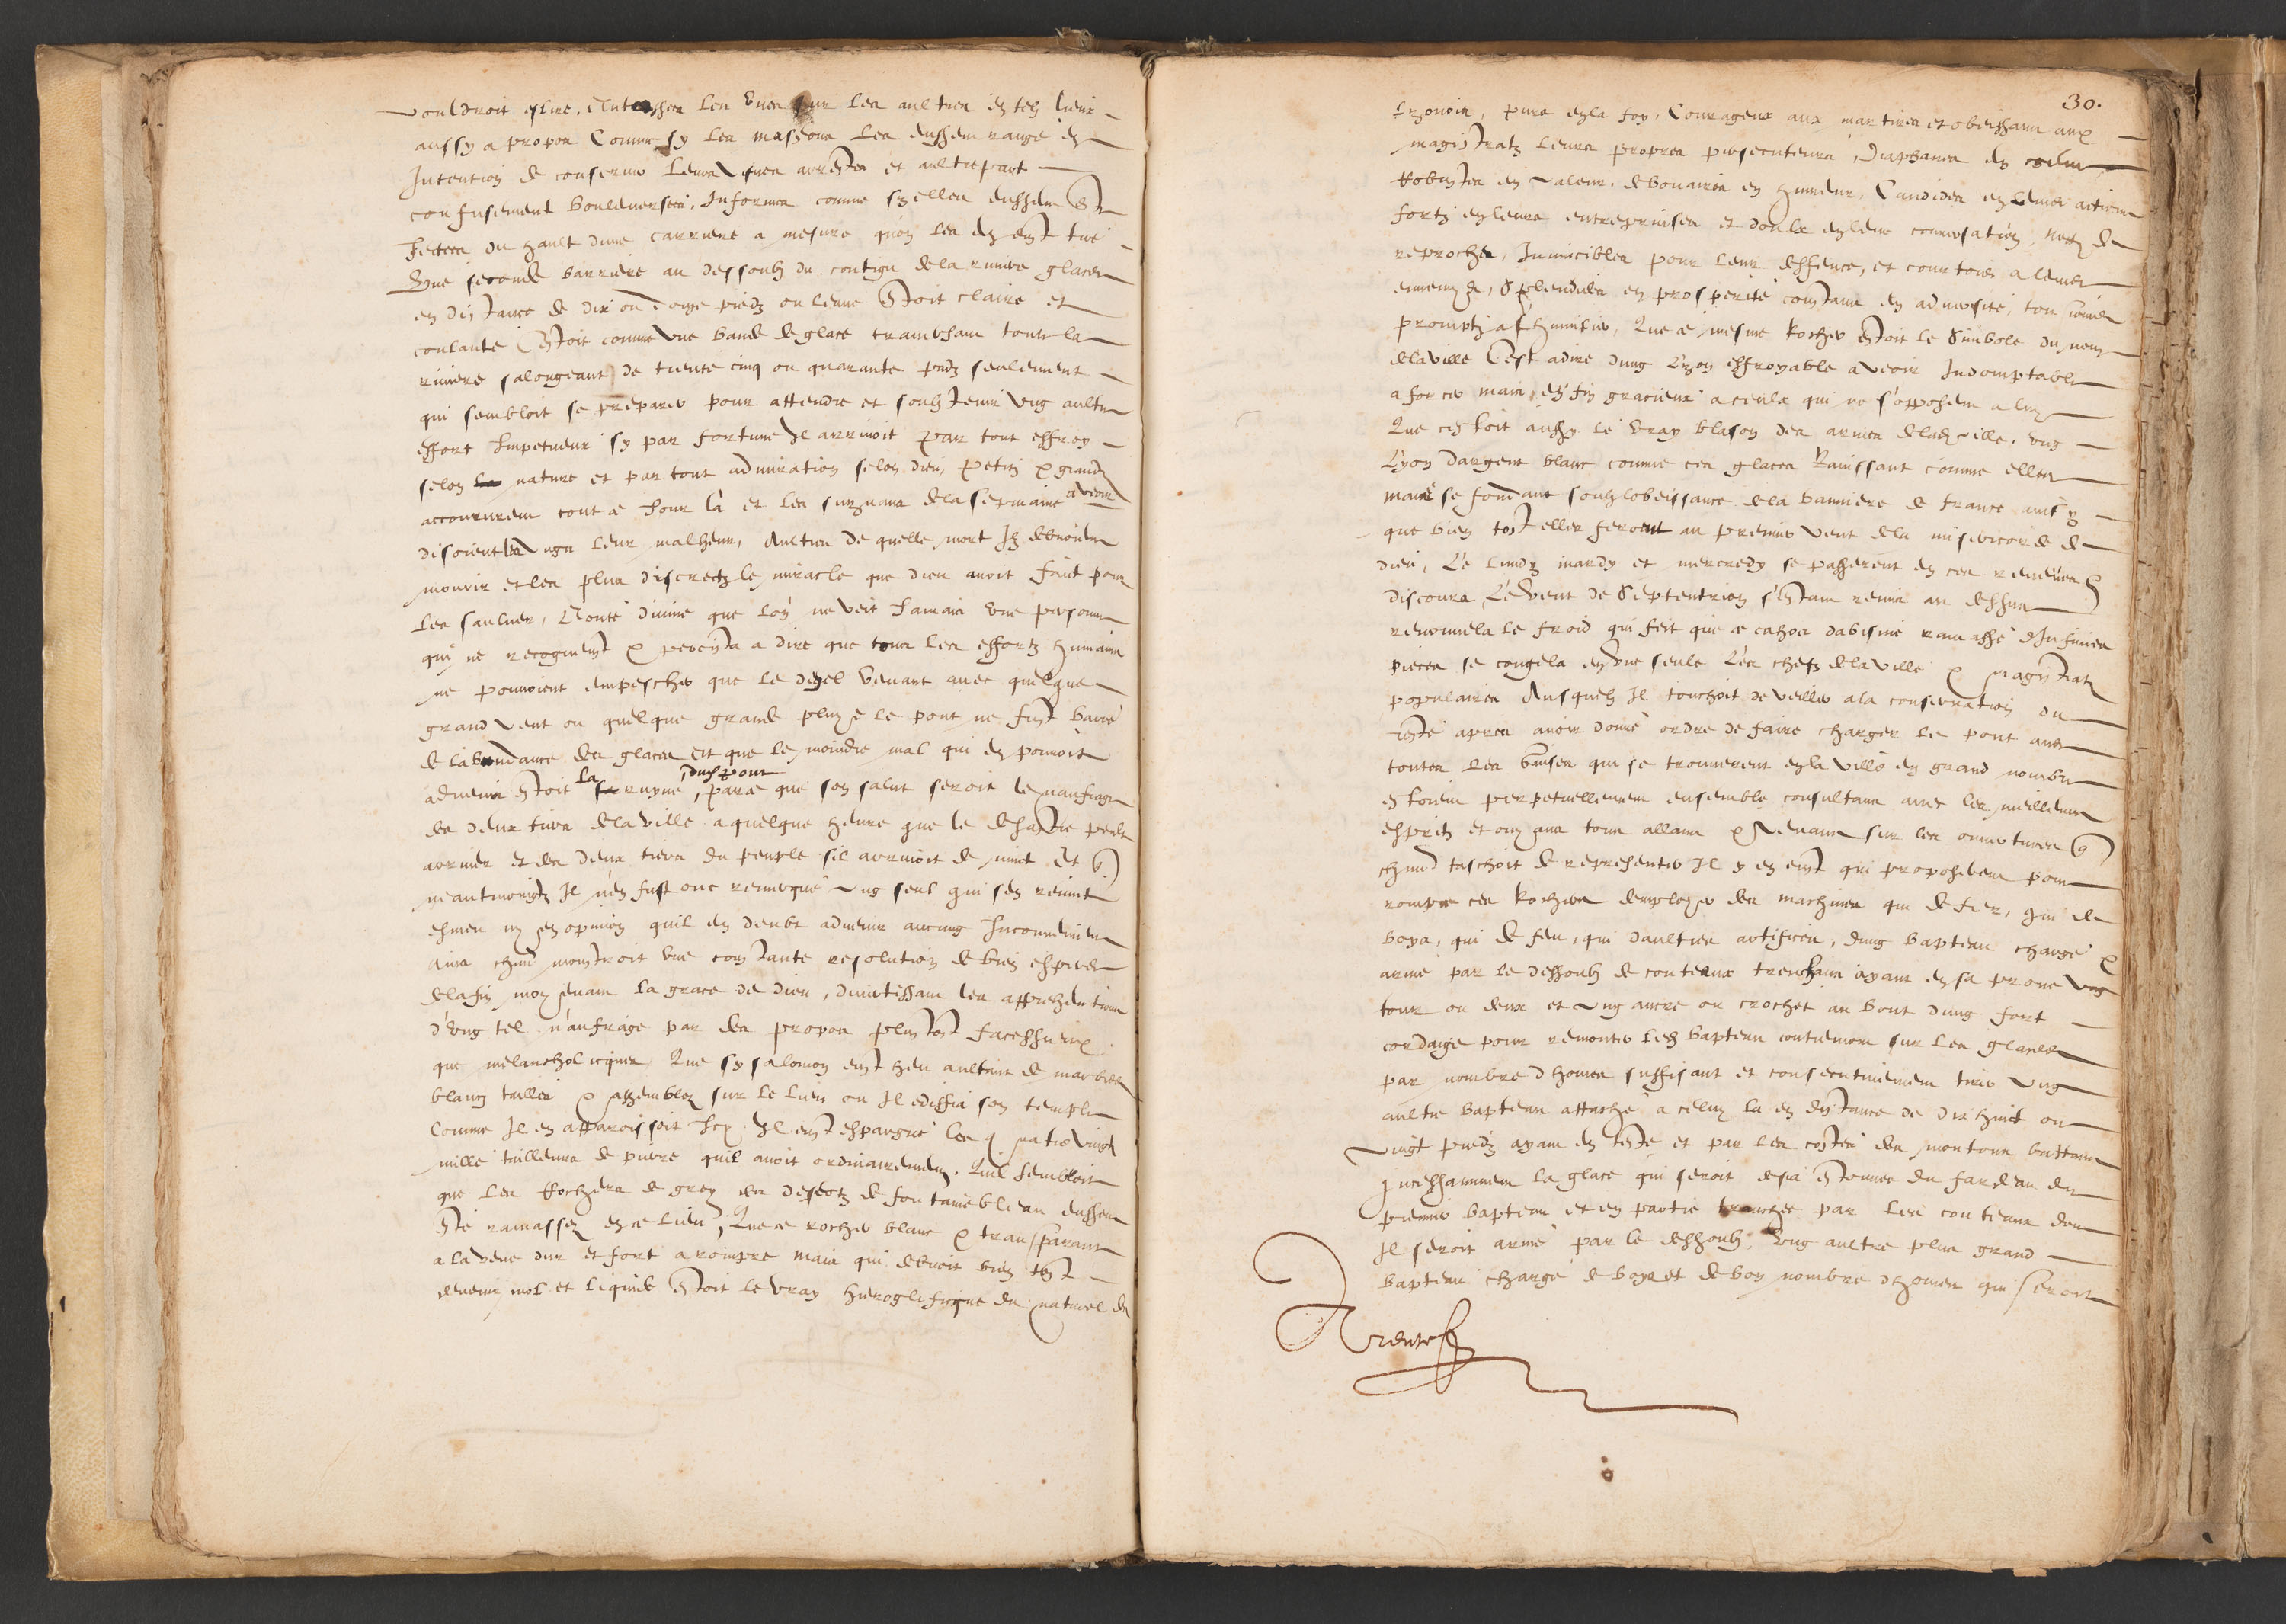 vouldroit eslire, Entassees les unes sur les aultres en telz lieux
aussy a propos Comme sy les massons les eussent rangé en
Intention de conserver leurs arrestes et aultrepart
confusement bouleversees, Informes comme sy elles eussent esté
Jectees du hault dune carriere a mesure quon les en eust tiré
Une seconde barriere au dessoubz du contigu de la rivière glacee
en distance de dix ou douze piedz ou leaue estoit claire et
coulante Estoit comme une bande de glace traversant toute la
riviere salongeant de trente cinq ou quarante piedz seulement
qui sembloit se preparer pour attendre et soubstenir ung aultre
effort Impetueux sy par fortune Il arrivoit Par tout effroy
selon nature et par tout admiration selon dieu, Petitz & grandz
accoururent tout ce Jour là et les suyvans de la sepmaine a veoir
disoient les ungs leur malheur, Aultres de quelle mort Ilz debvoient
mourir et les plus discretz le miracle que dieu avoit faict pour
les saulver, Bonté divine que lon ne veit Jamais une personne
qui ne recogneust & persista a dire que tous les effortz humains
ne pouvoient empescher que le degel venant avec quelque
grand vent ou quelque grande pluye le pont ne fust barré
de labondance des glaces et que le moindre mal qui en pouvoit
advenir estoit la ruyne dud pont, parce que son salut seroit le naufrage
des deux tiers de la ville a quelque heure que le desastre peult
arriver et des deux tiers du peuple sil arrivoit de nuict Et
neantmoings Il nen fust onc remerqué ung seul qui sen
esmeu ny en opinion quil en deubt advenir aucung Inconvenient
Ains chun monstroit une constante resolution de bien esperer
de la fin moyennant la grace de dieu, divertissant les apprehentions
d'ung tel naufrage par des propos plustost facessieux
que melancholicques, Que sy salomon eust heu aultant de marbre
blancz taillez & assemblez sur le lieu ou Il edifia son temple
Comme Il en apparoissoit Icy. Il eust espargné les quatre vingtz
mille tailleurs de pierre quil avoit ordinairement. Quil sembloit
que les Rochers de grez des desertz de fontainebleau eussent
esté ramassez en ce lieu, Que ce rocher blanc & transparant
a la veue dur et fort a rompre mais qui debvoit bien tost
devenir mol et liquide estoit le vray hieroglifique du naturel des
30.
Lyonois, purs en la foy, Courageux aux martires et obeissans aux
magistratz leurs propres persecuteurs, Diaphanes en
Robustes en valeur, debonaires en humeur, Candides en leurs actions
fortz en leurs entreprinses et doulx en leur conversation, netz de
reproches, Invincibles pour leur deffence, et courtois a leurs
ennemys, Splendides en prosperité constans en adversité, tousiours
promptz a shumilier, Que ce mesme Rocher estoit le Simbole du nom
de la ville C'est a dire dung Lyon effroyable a veoir Indomptable
a forcer mais en fin gracieux a ceulx qui ne s'opposent a luy
Que cestoit aussy le vray blason des armes de lad ville, ung
Lyon dargent blanc comme ces glaces Ravissant comme elles
mais se fondant soubz lobeissance de la banniere de france ainsy
que bien tost elles feroient au premier vent de la misericorde de
dieu, Le Lundy mardy et mercredy se passerent en ces &
discours, Le vent de Septentrion s'estant remis au dessus
renouvela le froid qui feit que ce cahos dabisme ramassé dInfinies
pieces se congela en une seule Les chefz de la ville & magistratz
populaires Ausquelz Il touchoit de veiller a la conservation du
reste apres avoir donné ordre de faire charger le pont avec
toutes les qui se trouverent en la ville en grand nombre
estoient perpetuellement ensemble consultant avec les meilleurs
espritz et oyans tous allans & venans sur les ouvertures que
chun taschoit de representer Il y en eust qui proposerent pour
rompre ces Rochers demployer des machines qui de fer, qui de
boys, qui de feu, qui daultres artifices, dung bapteau chargé &
armé par le dessoubz de couteaux trenchans ayant en sa proue ung
tour ou deux et ung ancre ou crochet au bout dung fort
cordaige pour remonter led bapteau contremont sur les glaces
par nombre dhomes suffisant et consecutivement tirer ung
aultre bapteau attaché a celuy la en distance de dix huict ou
vingt piedz ayant en teste et par les costes des moutons battans
Incessamment la glace qui seroit desia estonnee du fardeau du
premier bapteau et en partie tranchee par les couteaux dont
Il seroit armé par le dessoubz, Ung aultre plus grand
bapteau chargé de boys et de bon nombre dhomes qui seroit